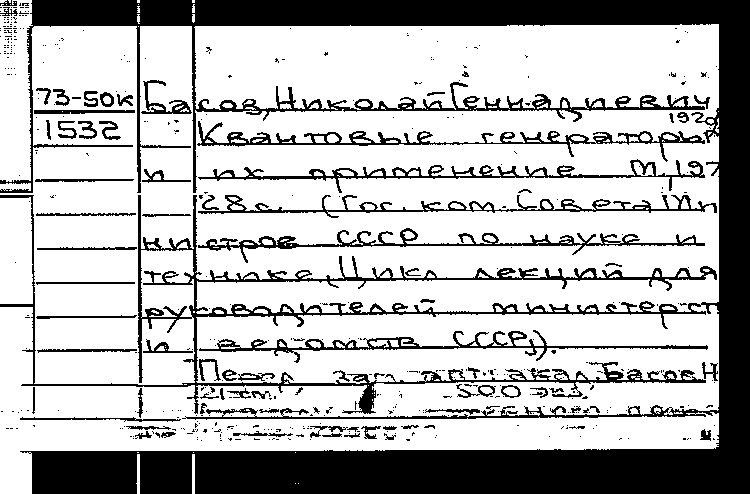 73-50к Басов, Николай Геннадиевич,
1929
1532 Квантовые генераторы
и их применение М., 197
28с. (Гос. ком. Совета Ми
нистров СССР по науке и
технике, Цикл лекций для
руководителей министерст
и ведомств СССР,).
Перед загл. авт.: акад. Басов Н
21 см. 500 экз.